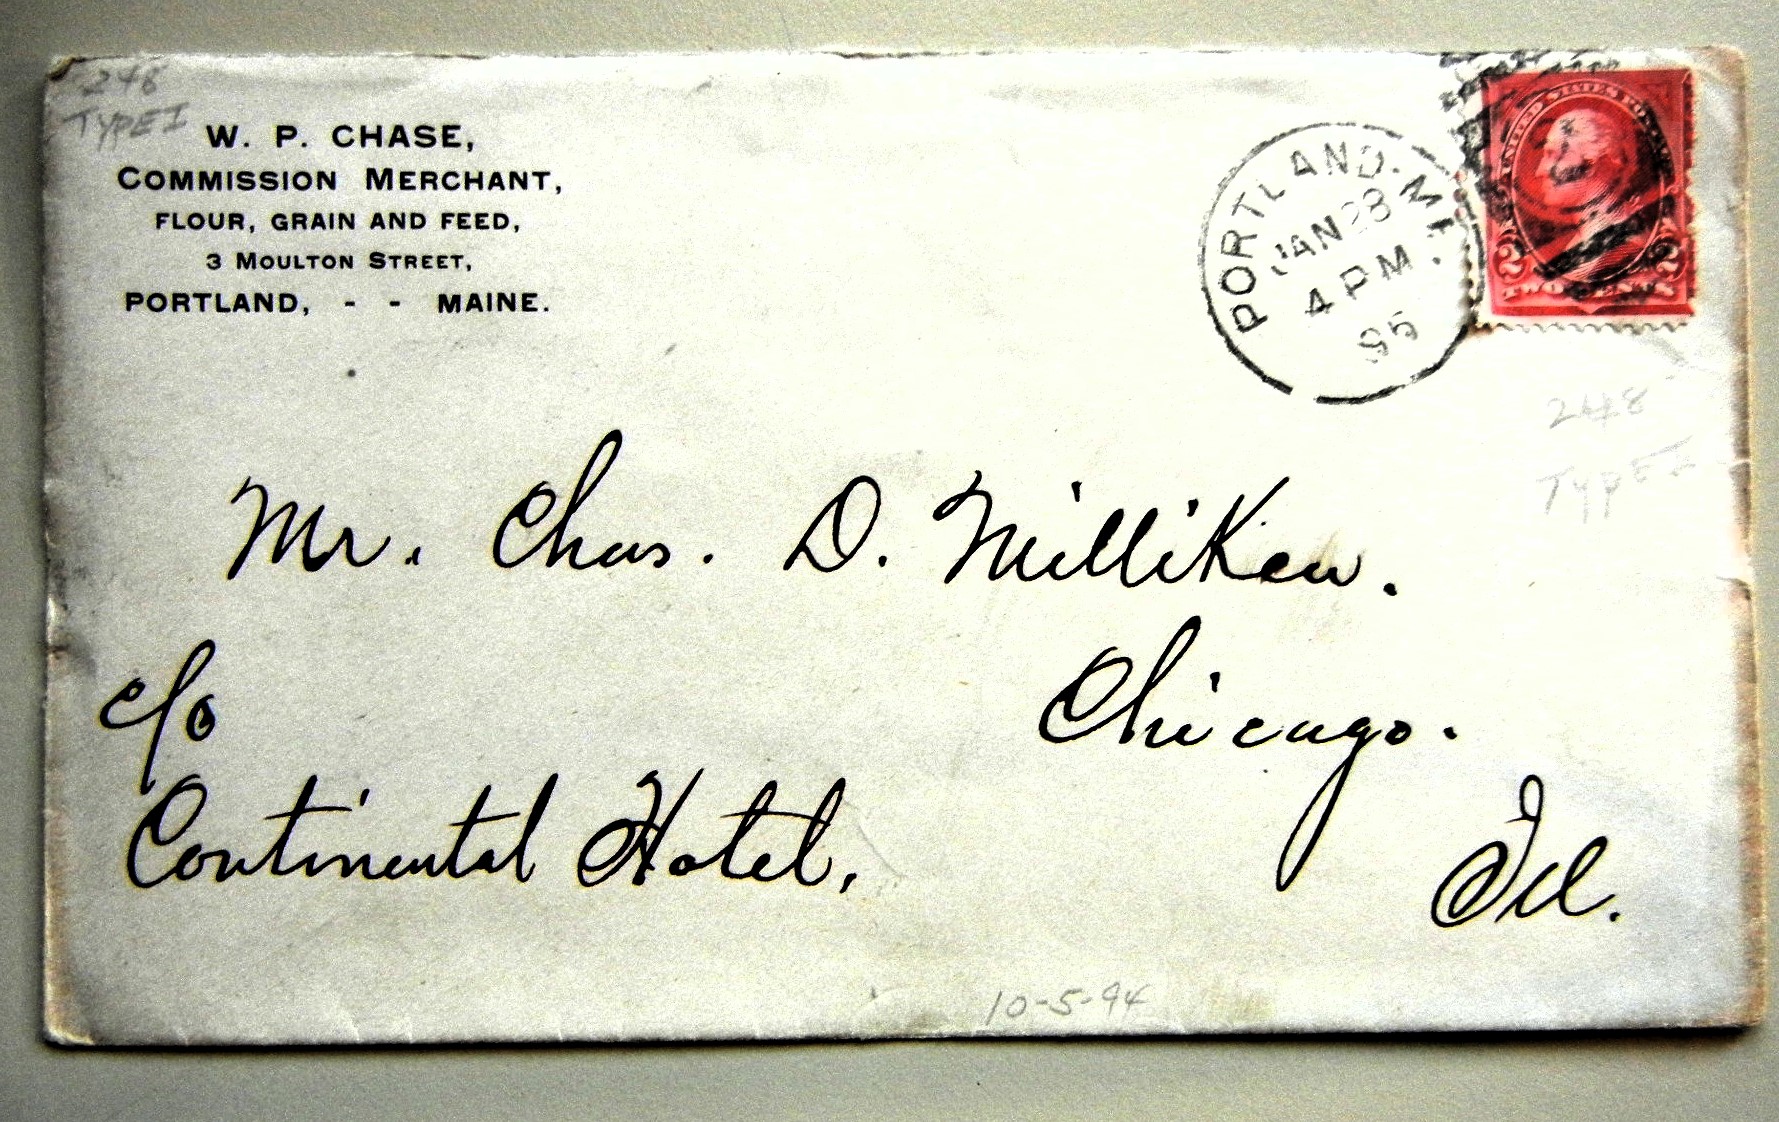 248
TYPE I
W. P. CHASE,
COMMISSION MERCHANT,
FLOUR, GRAIN AND FEED,
3 MOULTON STREET,
PORTLAND, - - MAINE.
PORTLAND. ME.
JAN 28
4 PM
95
UNITED STATES PO
2 2
TWO CENTS
248
TYPE I
Mr. Chas. D. Milliken.
c/o
Chicago.
Continental Hotel,
Ill.
10-5-94